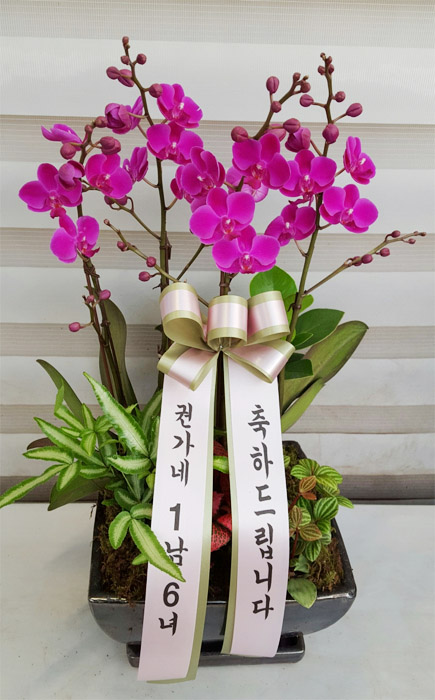 권가네 1남6녀
축하드립니다